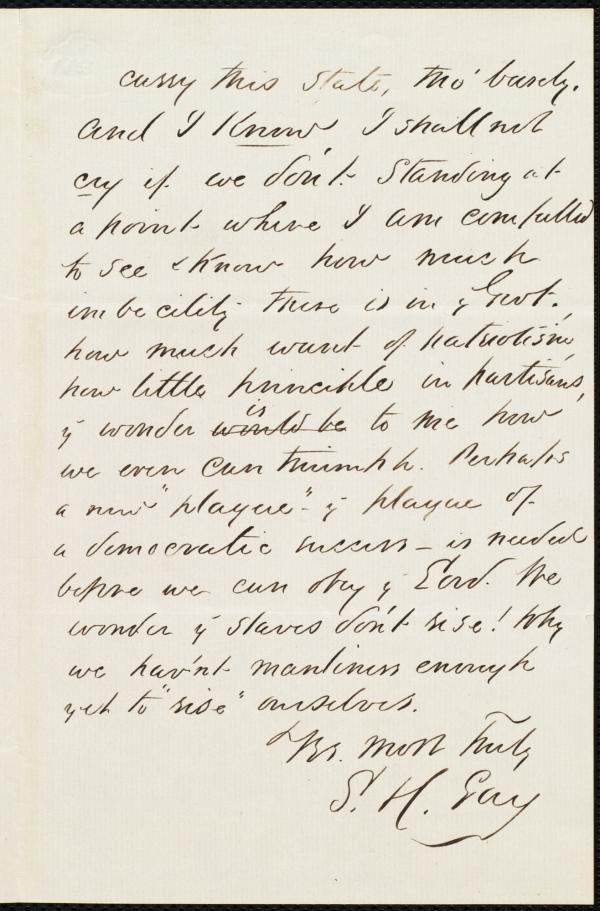 carry this State, tho' barely.
And I Know I shall not
cry if we don't. Standing at
a point where I am compelled
to see & know how much
imbecility there is in y Govt.,
how much want of patriotism,
how little principle in partisans,
y wonder would be is to me how
we even can triumph. Perhaps
a new "plague" - y plague of
a democratic success - is needed
before we can obey y Lord. We
wonder y slaves don't rise! Why
we hav'nt manliness enough
yet to "rise" ourselves.
Yrs. most truly
S. H. Gay